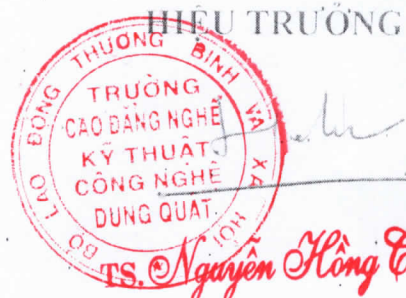 HIỆU TRƯỞNG
BỘ LAO ĐỘNG THƯƠNG BINH VÀ XÃ HỘI
TRƯỜNG
CAO ĐẲNG NGHỀ
KỸ THUẬT
CÔNG NGHỆ
DUNG QUẤT
TS. Nguyễn Hồng